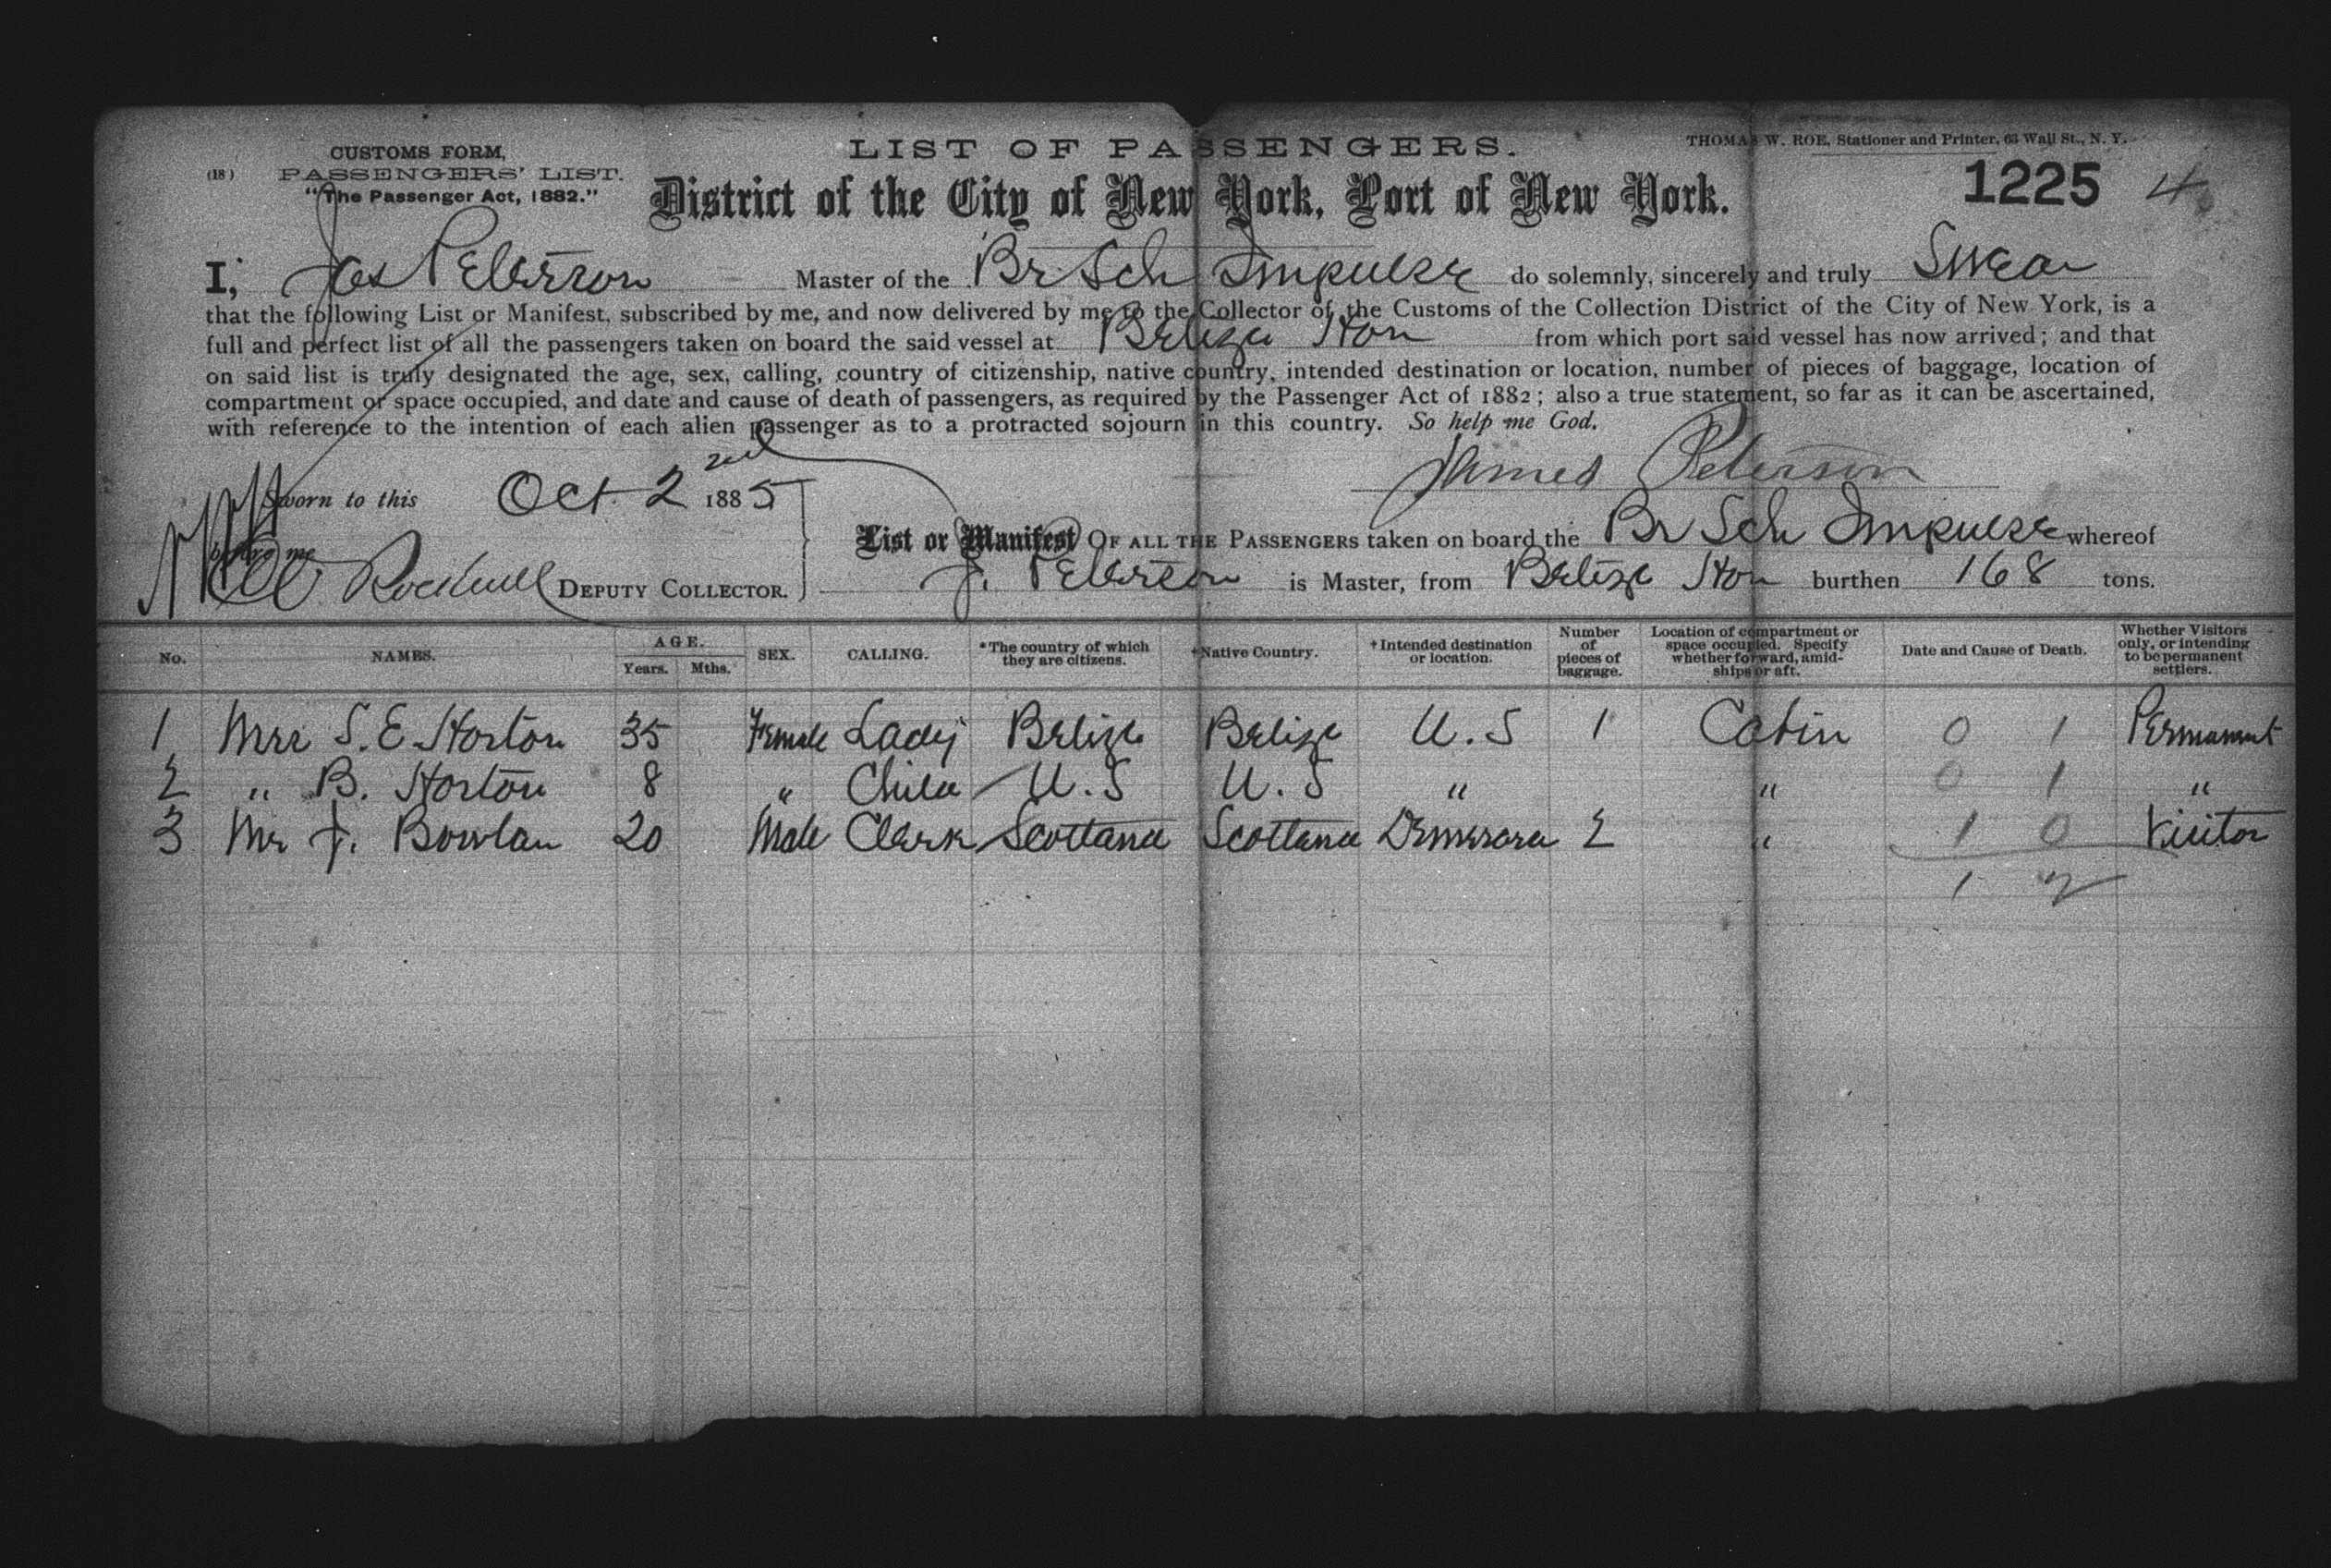 CUSTOMS FORM,
(18) PASSENGERS' LIST.
"The Passenger Act, 1882."
LIST OF PASSENGERS.
THOMAS W. ROE, Stationer and Printer, 63 Wall St., N. Y.
District of the City of New York, Port of New York.
1225 4
I, Jas Peterson Master of the Br Sch Impulse do solemnly, sincerely and truly Swear
that the following List or Manifest, subscribed by me, and now delivered by me to the Collector of the Customs of the Collection District of the City of New York, is a
full and perfect list of all the passengers taken on board the said vessel at Belize Hon from which port said vessel has now arrived; and that
on said list is truly designated the age, sex, calling, country of citizenship, native country, intended destination or location, number of pieces of baggage, location of
compartment or space occupied, and date and cause of death of passengers, as required by the Passenger Act of 1882; also a true statement, so far as it can be ascertained,
with reference to the intention of each alien passenger as to a protracted sojourn in this country. So help me God.
James Peterson
Sworn to this Oct. 2 2nd 1885
before me
Rockwell DEPUTY COLLECTOR.
List or Manifest OF ALL THE PASSENGERS taken on board the Br Sch Impulse whereof
J. Peterson is Master, from Belize Hon burthen 168 tons.
No. NAMES. AGE. Years. Mths. SEX. CALLING. *The country of which they are citizens. †Native Country. †Intended destination or location. Number of pieces of baggage. Location of compartment or space occupied. Specify whether forward, amidships or aft. Date and Cause of Death. Whether Visitors only, or intending to be permanent settlers.
1 Mrs S. E Horton 35 Female Lady Belize Belize U.S 1 Cabin 0 1 Permanent
2 " B. Horton 8 " Child U.S U.S " " 0 1 "
3 Mr J. Bowlan 20 Male Clerk Scotland Scotland Demerara 2 " 1 0 Visitor
1 2